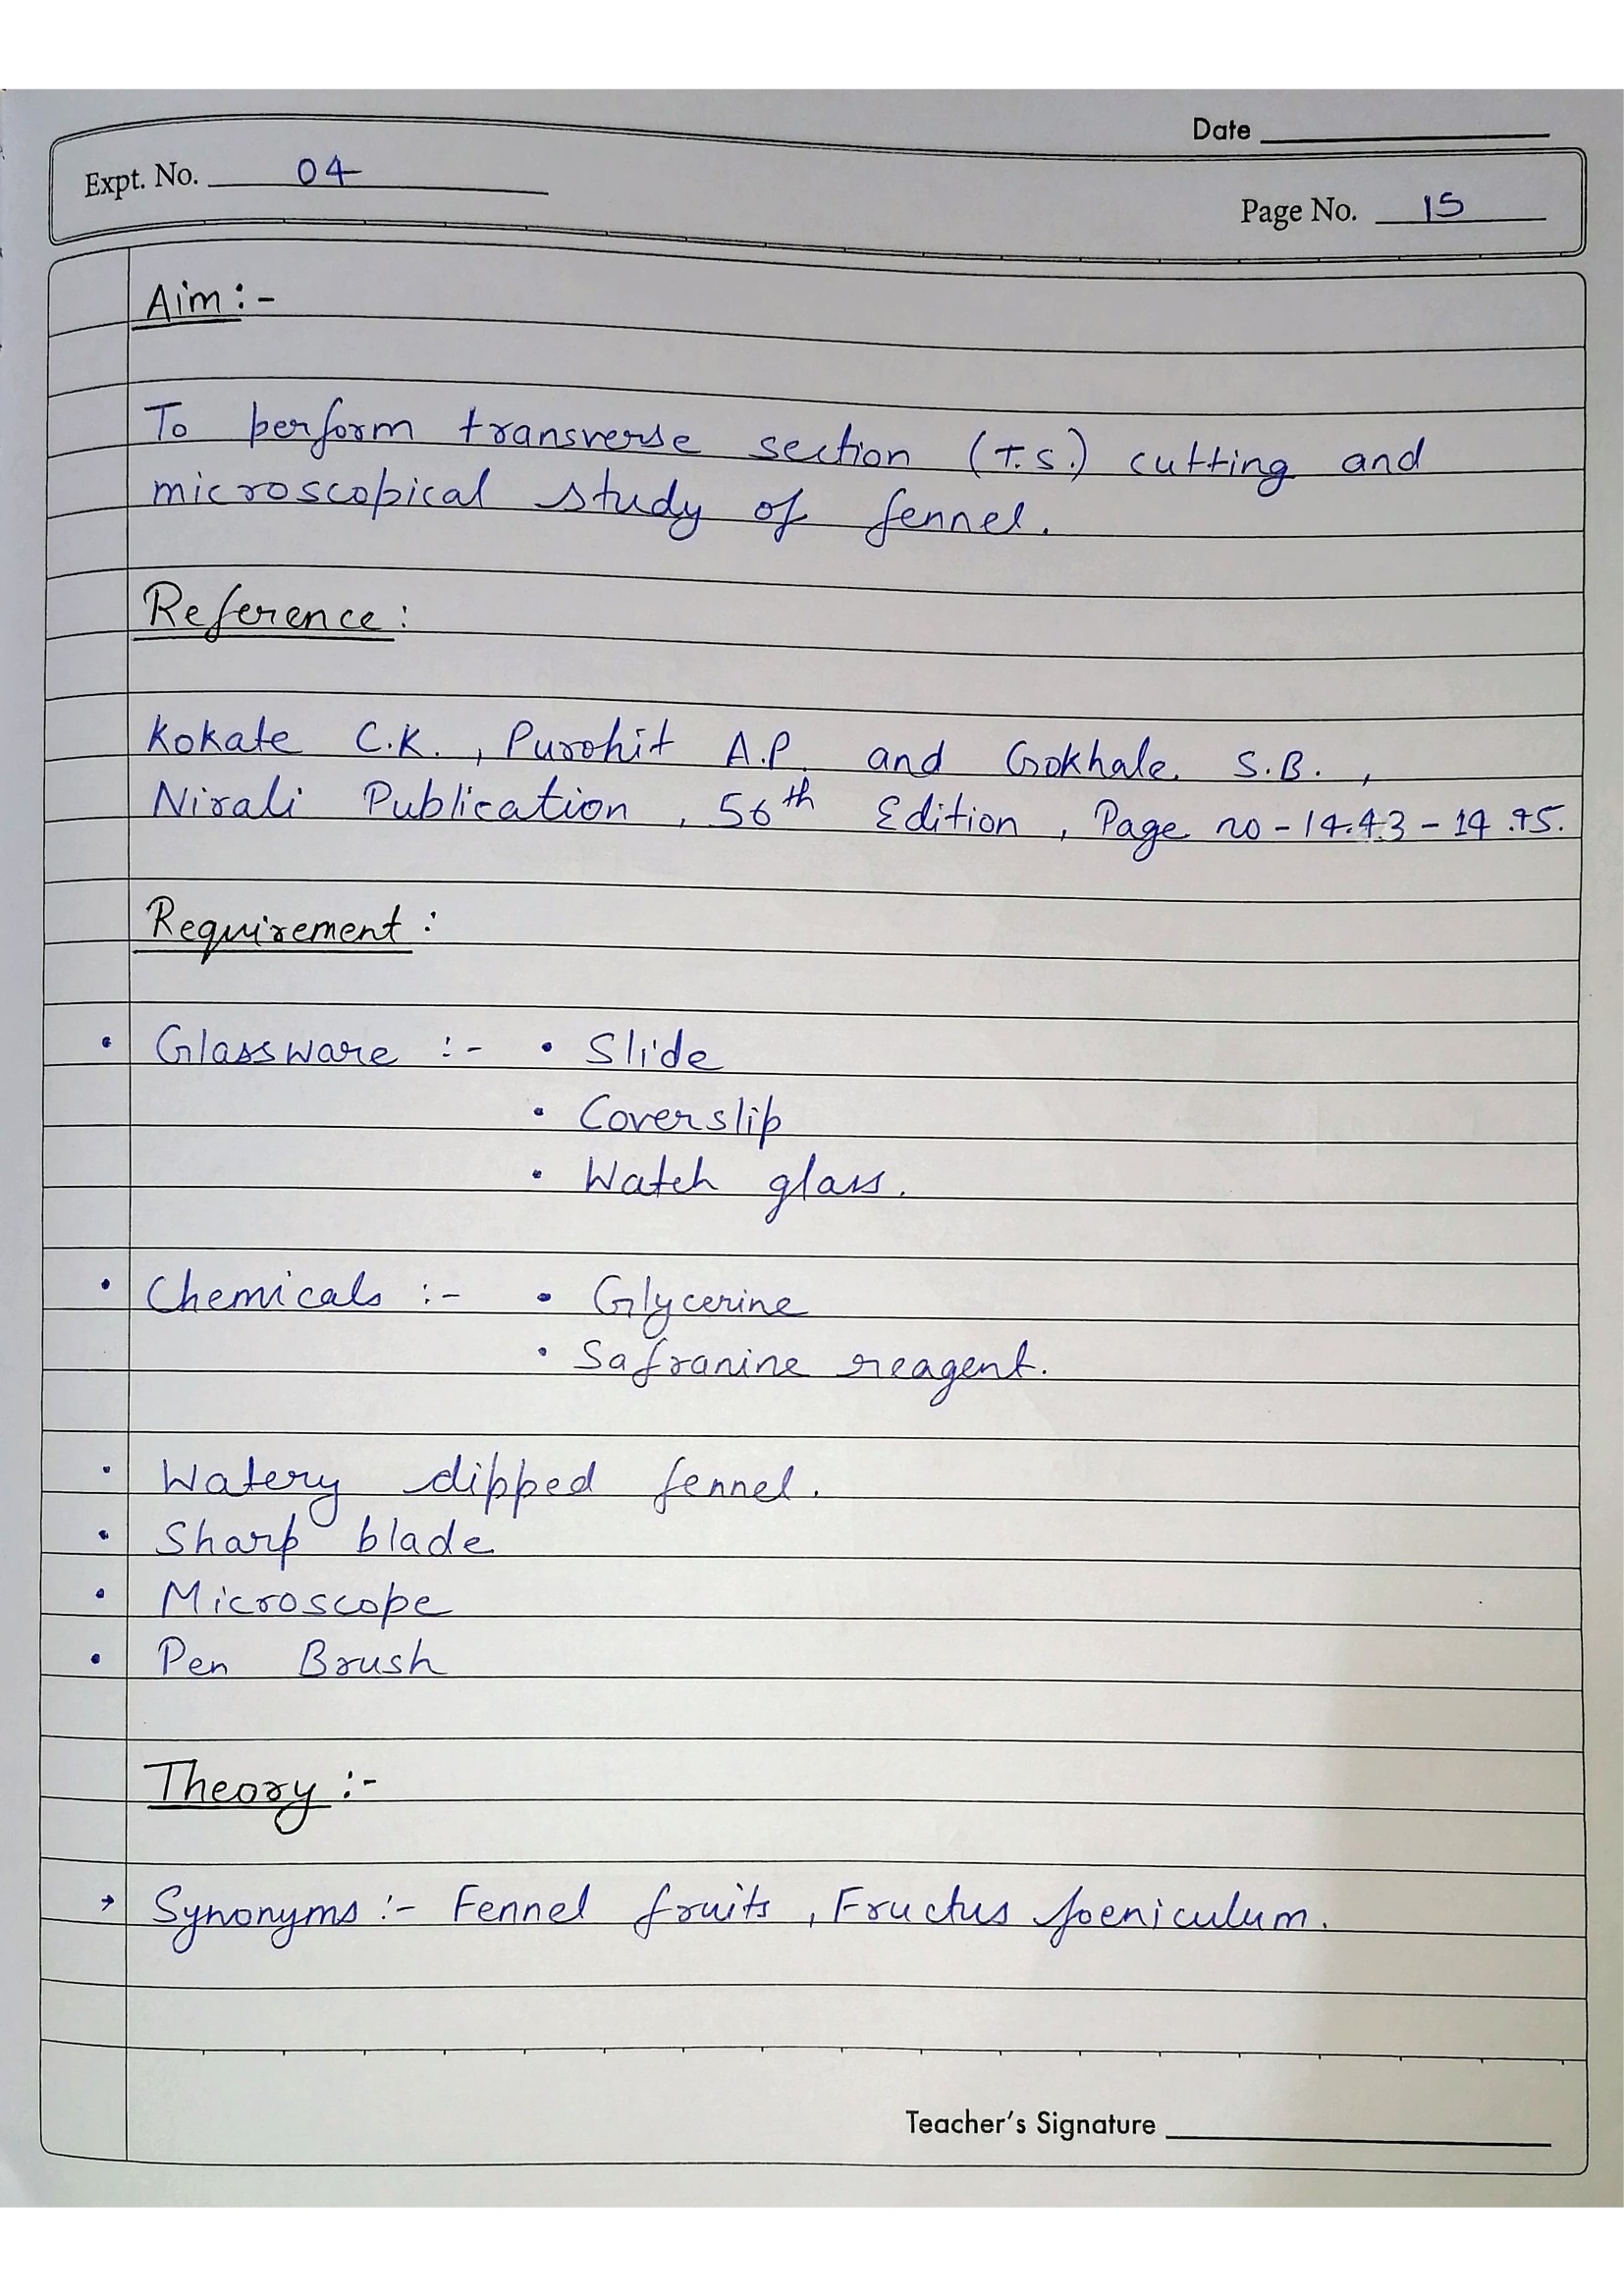 Date
Expt. No. 04
Page No. 15
Aim:-
To perform transverse section (T.S.) cutting and
microscopical study of fennel.
Reference:
Kokate C.K., Purohit A.P. and Gokhale S.B.,
Nirali Publication, 56th Edition, Page no-14.43-14.45.
Requirement:
• Glassware :- • Slide
• Coverslip
• Watch glass.
• Chemicals :- • Glycerine
• Safranine reagent.
• Watery dipped fennel.
• Sharp blade
• Microscope
• Pen Brush
Theory:-
→ Synonyms:- Fennel fruits, Fructus foeniculum.
Teacher's Signature